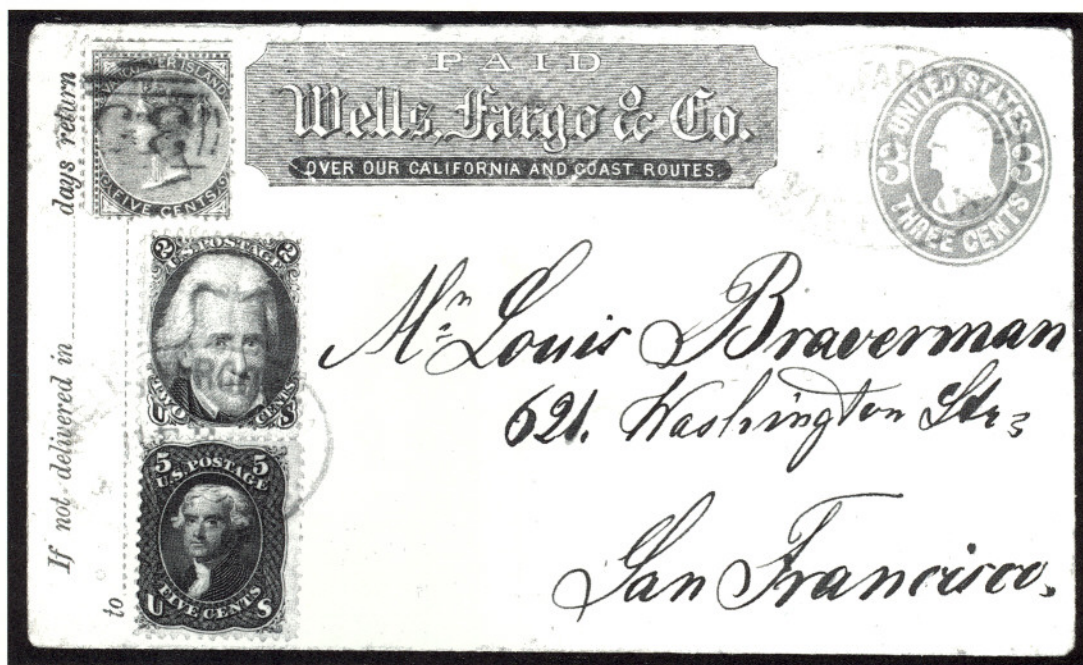 If not delivered in days return
to
VANCOUVER ISLAND
FIVE CENTS
PAID
Wells, Fargo & Co.
OVER OUR CALIFORNIA AND COAST ROUTES.
UNITED STATES
3 3
THREE CENTS
2 2
U.S. POSTAGE
TWO CENTS
U S
5 5
U.S. POSTAGE
FIVE CENTS
U S
Mr. Louis Braverman
621. Washington Str,
San Francisco.